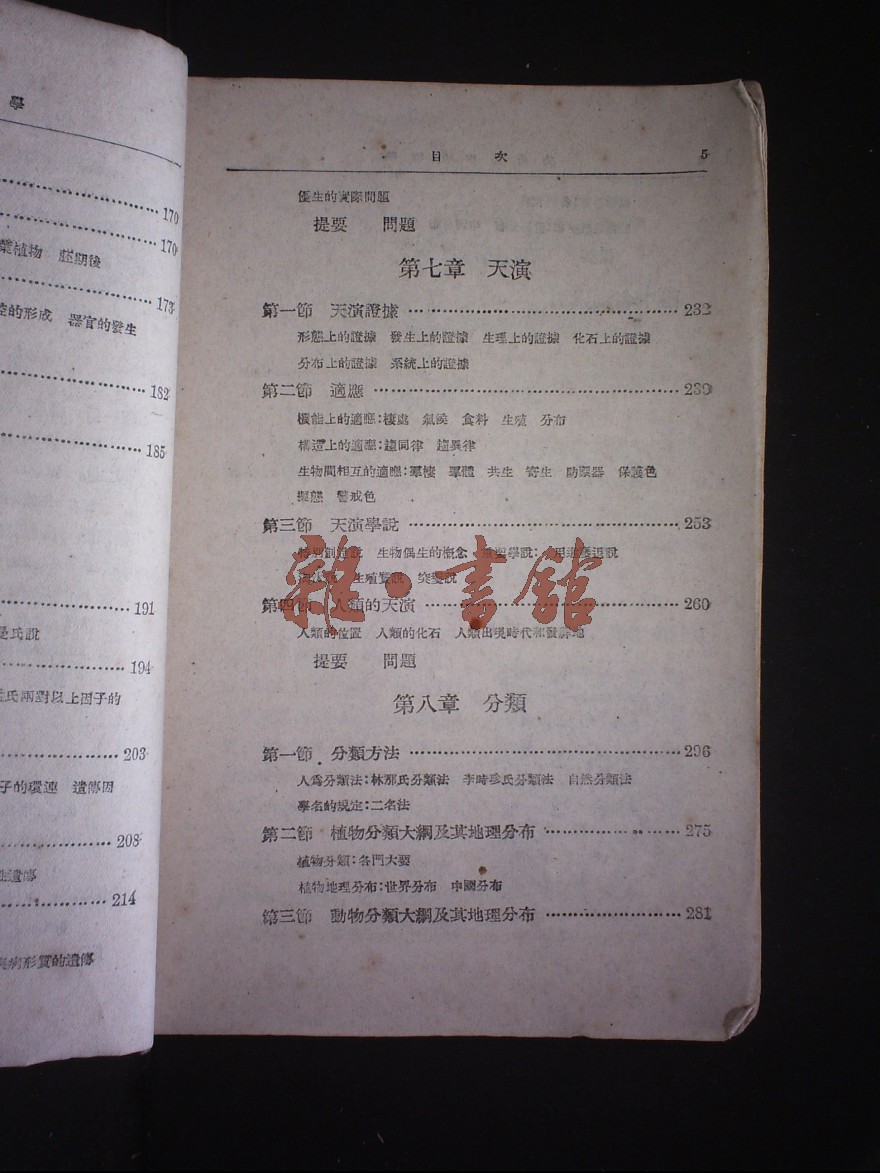 學
170
170
葉植物 胚期後
173
腔的形成 器官的發生
182
185
191
氏說
194
氏兩對以上因子的
203
子的環連 遺傳因
208
遺傳
214
病形質的遺傳
目 次 5
優生的實際問題
提要 問題
第七章 天演
第一節 天演證據 232
形態上的證據 發生上的證據 生理上的證據 化石上的證據
分布上的證據 系統上的證據
第二節 適應 239
機能上的適應:棲處 氣候 食料 生殖 分布
構造上的適應:趨同律 趨異律
生物間相互的適應:羣棲 羣體 共生 寄生 防禦器 保護色
擬態 警戒色
第三節 天演學說 253
特別創造說 生物偶生的概念 學說: 用進廢退說
生殖質說 突變說
第四節 人類的天演 260
人類的位置 人類的化石 人類出現時代和發祥地
提要 問題
第八章 分類
第一節 分類方法 266
人為分類法:林那氏分類法 李時珍氏分類法 自然分類法
學名的規定:二名法
第二節 植物分類大綱及其地理分布 275
植物分類:各門大要
植物地理分布:世界分布 中國分布
第三節 動物分類大綱及其地理分布 281
雜·書館